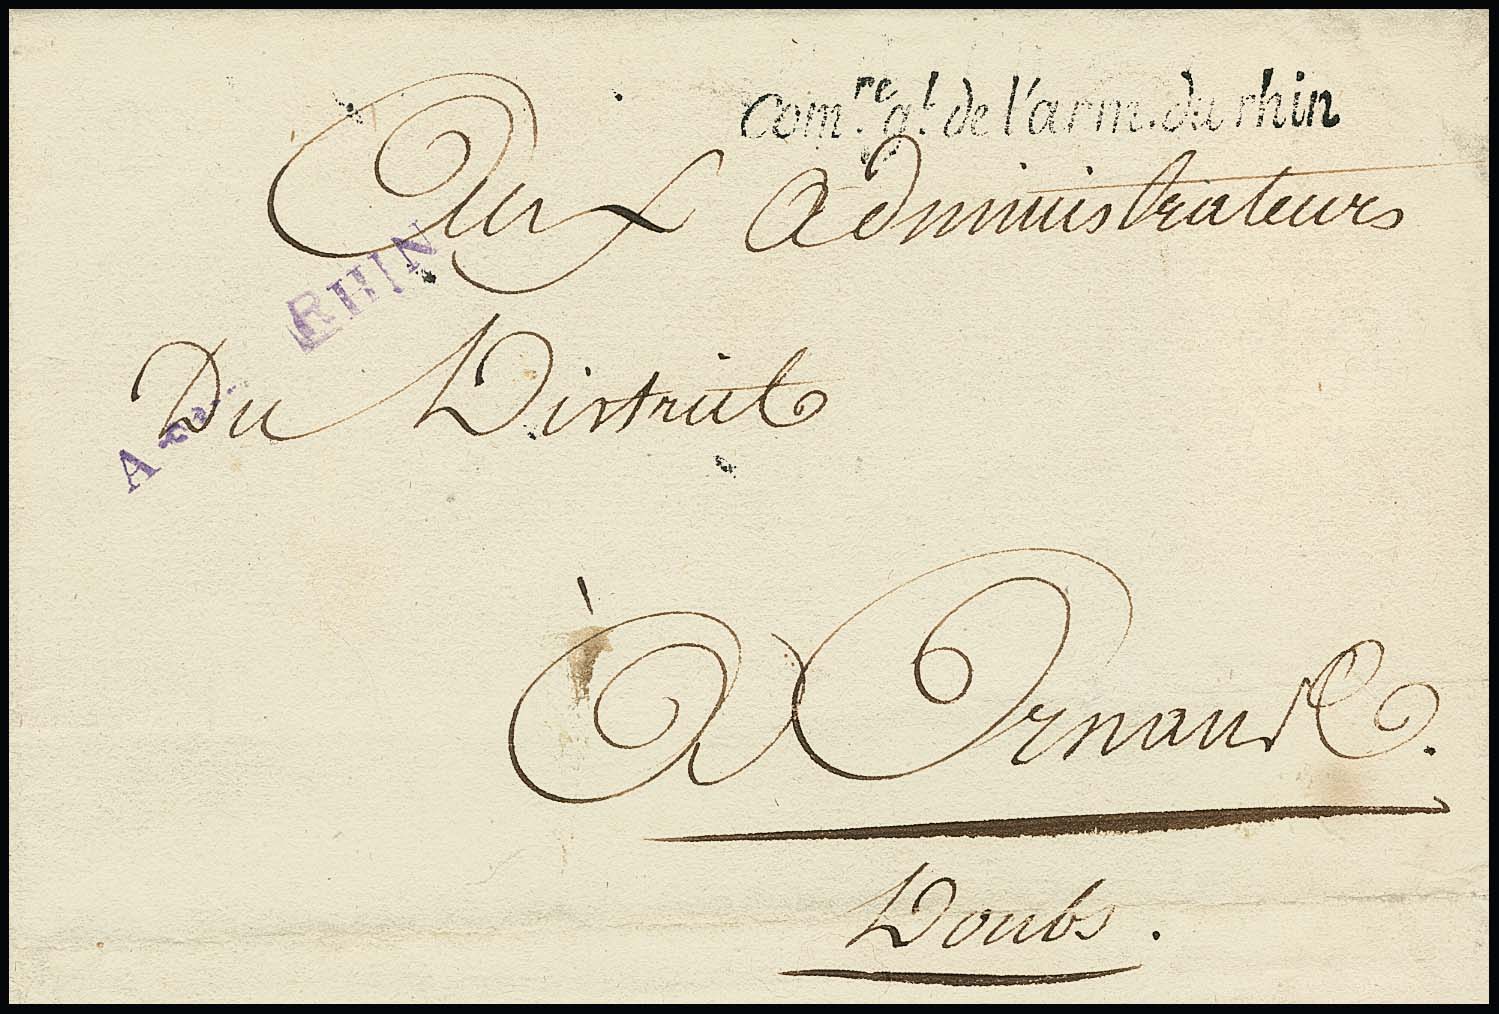 Com.re g.l de l'arm. du rhin
Aux Administrateurs
RHIN
Du District
à Ornans.
Doubs.